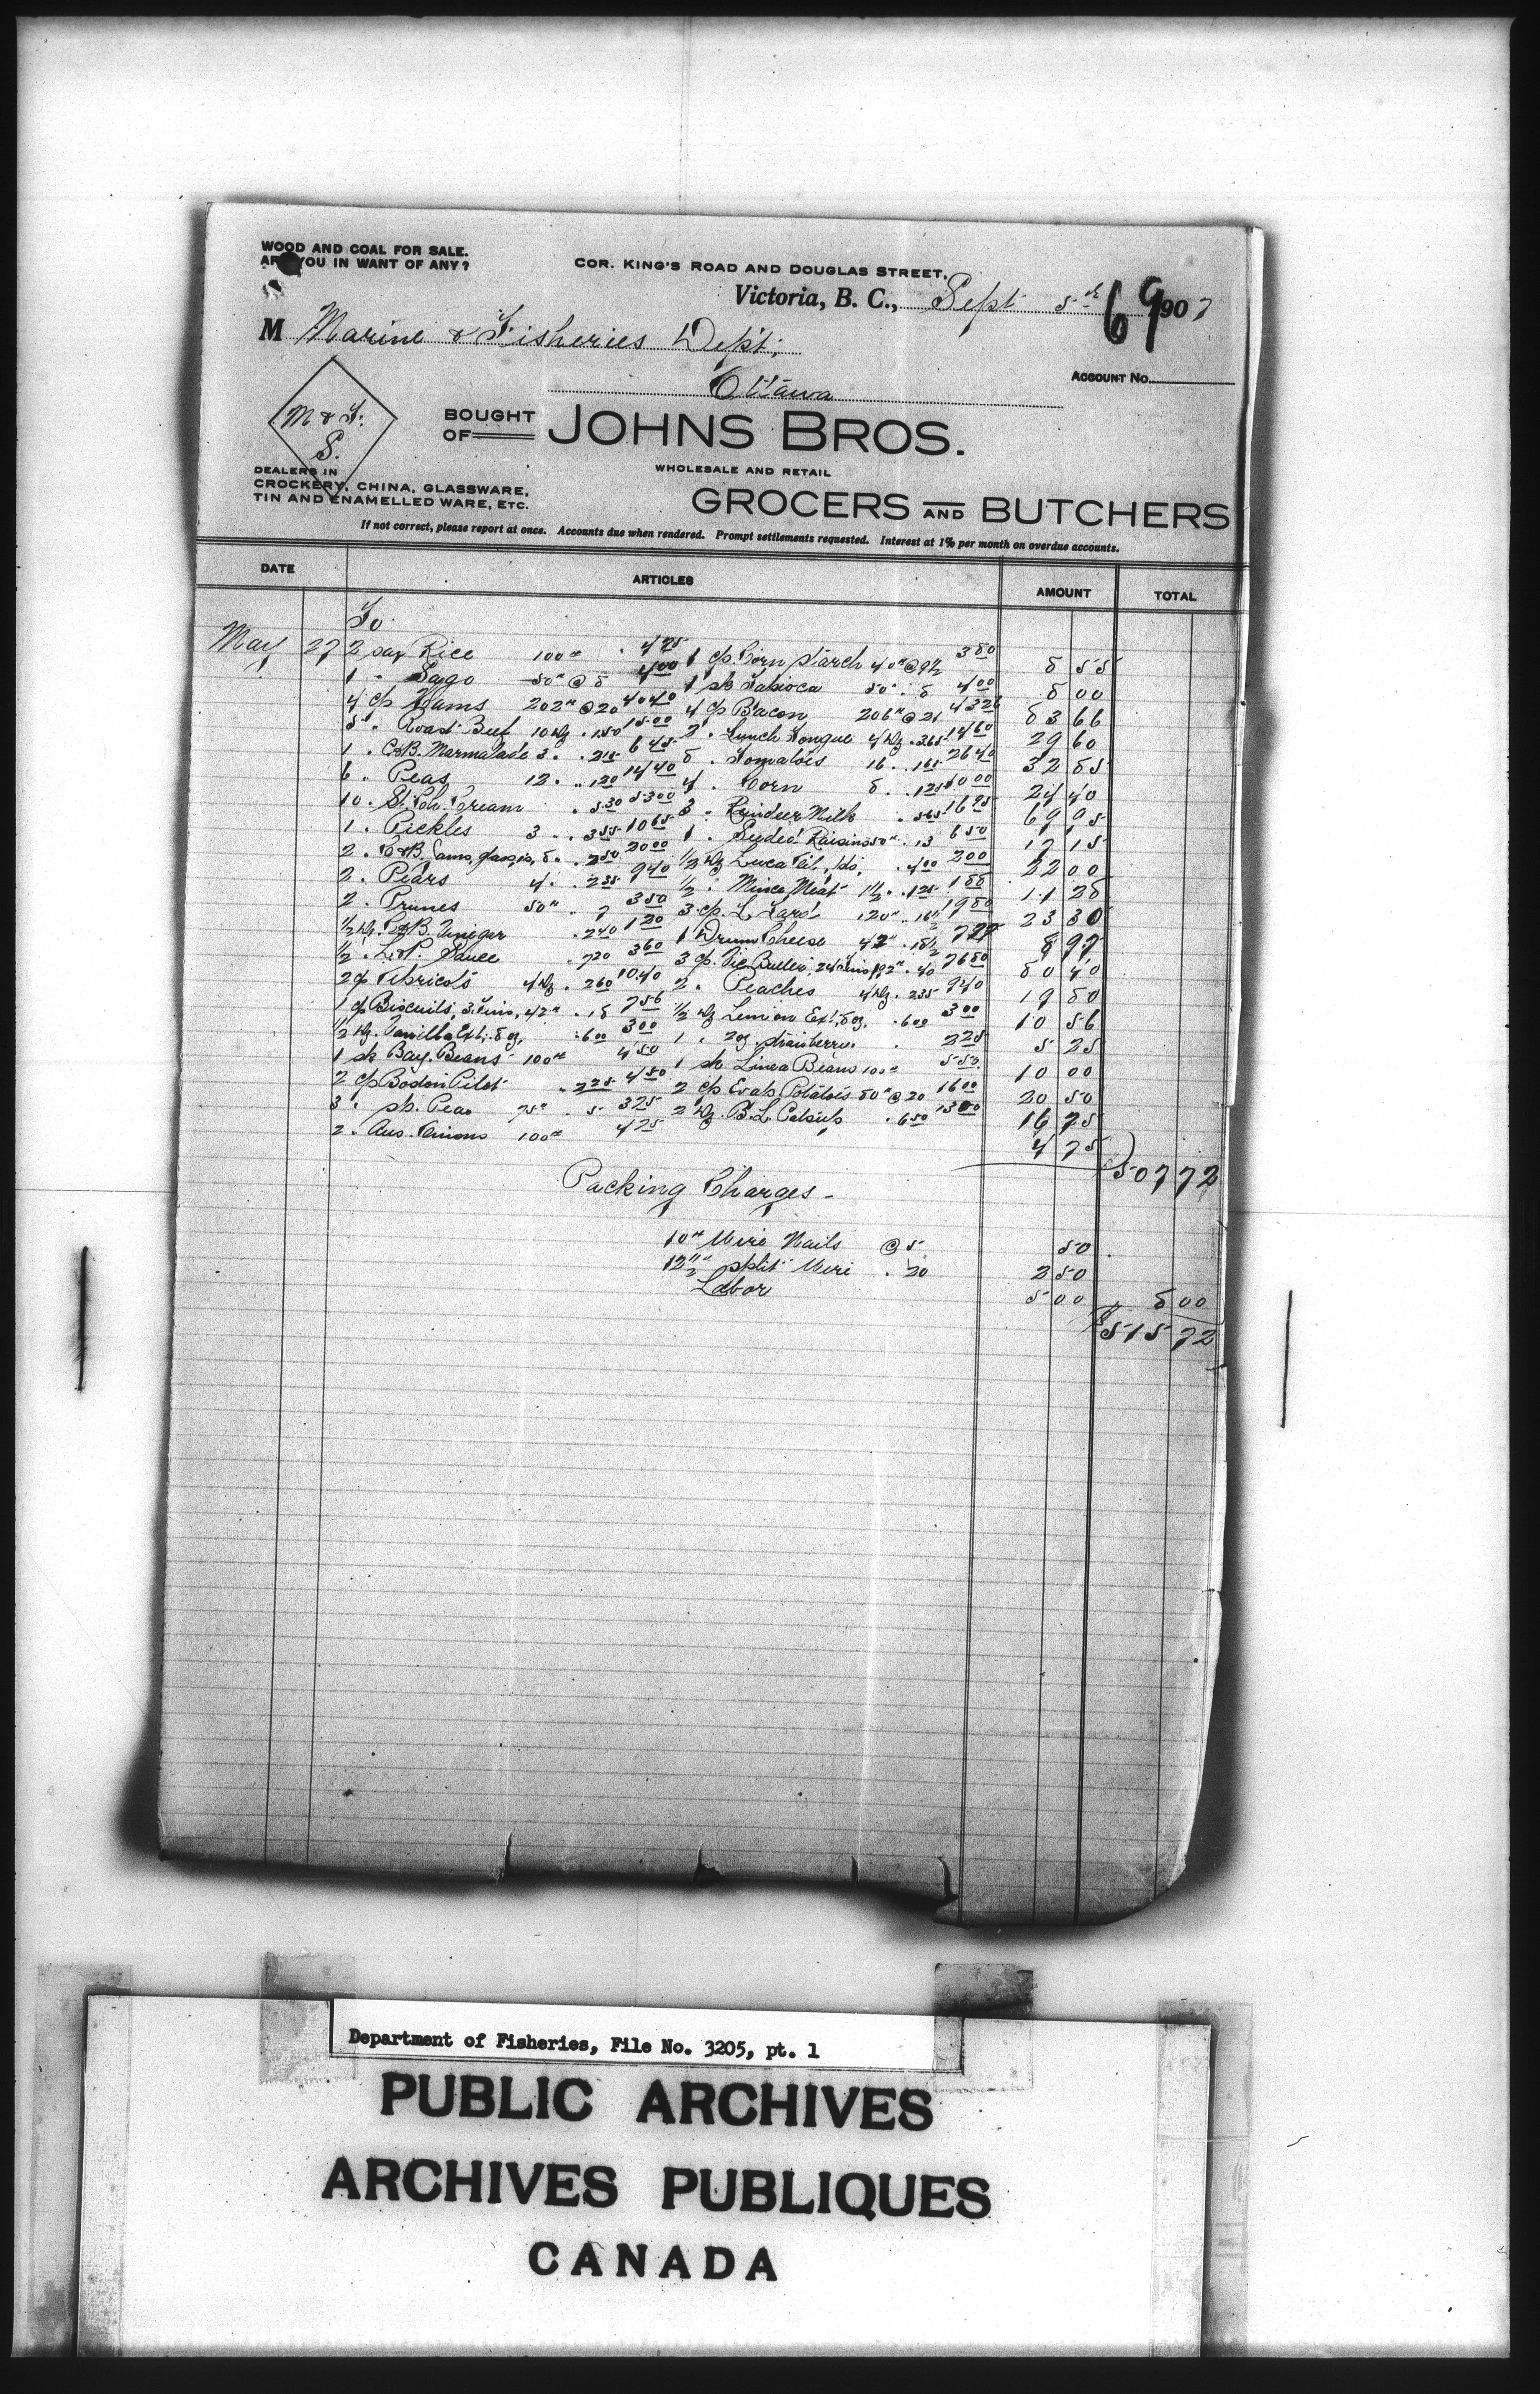 WOOD AND COAL FOR SALE.
ARE YOU IN WANT OF ANY?
COR. KING'S ROAD AND DOUGLAS STREET.
Victoria, B. C., Sept 5th 1907
69
M Marine & Fisheries Dept,
Ottawa
ACCOUNT No.
M & F.
S.
BOUGHT OF JOHNS BROS.
DEALERS IN
CROCKERY, CHINA, GLASSWARE,
TIN AND ENAMELLED WARE, ETC.
WHOLESALE AND RETAIL
GROCERS AND BUTCHERS
If not correct, please report at once. Accounts due when rendered. Prompt settlements requested. Interest at 1% per month on overdue accounts.
DATE ARTICLES AMOUNT TOTAL
To
May 27 2 sax Rice 100# . 475 1 c/s Corn Starch 40# @ 9½ 380 8 55
1 " Sago 50# @ 8 400 1 sk Tapioca 50# . 8 400 8 00
4 c/s Hams 202# @ 20 4040 4 c/s Bacon 206# @ 21 4326 83 66
5 . Roast Beef 10 dz . 150 1500 2 . Lunch Tongue 4 dz . 365 1460 29 60
1 . C&B. Marmalade 3 . . 215 645 8 . Tomatoes 16 . . 165 2640 32 85
6 . Peas 12 . . 120 1440 4 . Corn 8 . . 125 1000 24 40
10 . St. Ch. Cream . 530 5300 3 . Reindeer Milk . 565 1695 69 95
1 . Pickles 3 . . 355 1065 1 . Seeded Raisins 50# . 13 650 17 15
2 . C&B. Jams, glass, 8 . . 250 2000 ½ dz Lucca Oil, . 400 200 22 00
2 . Pears 4 . . 235 940 ½ . Mince Meat 1½ . . 125 188 11 28
2 . Prunes 50# . 7 350 3 c/s L Lard 120# . 16½ 1980 23 30
½ dz. C&B. Vinegar . 240 120 1 Drum Cheese 42# . 18½ 777 8 97
½ . L&P. Sauce . 720 360 3 c/s. Vic Butter, 24 tins 192# . 40 7680 80 40
2 c/s Apricots 4 dz . 260 1040 2 . Peaches 4 dz . 235 940 19 80
1 c/s Biscuits, 3 Tins, 42# . 18 756 ½ dz Lemon Ext, 8 oz, . 600 300 10 56
½ dz. Vanilla Ext, 8 oz, . 600 300 1 . 2 oz Strawberry . 225 5 25
1 sk Bay. Beans 100# 450 1 sk Lima Beans 100# 550 10 00
2 c/s Boston Pilot . 225 450 2 c/s Evap Potatoes 80# @ 20 1600 20 50
3 . sp. Peas 75# . 5 375 2 dz. B.L. Catsup . 650 1300 16 75
2 . Aus. Onions 100# 475 4 75
507 72
Packing Charges -
10# Wire Nails @ 5 50
12½# split Wire . 20 2 50
Labor 5 00 8 00
$515 72
Department of Fisheries, File No. 3205, pt. 1
PUBLIC ARCHIVES
ARCHIVES PUBLIQUES
CANADA